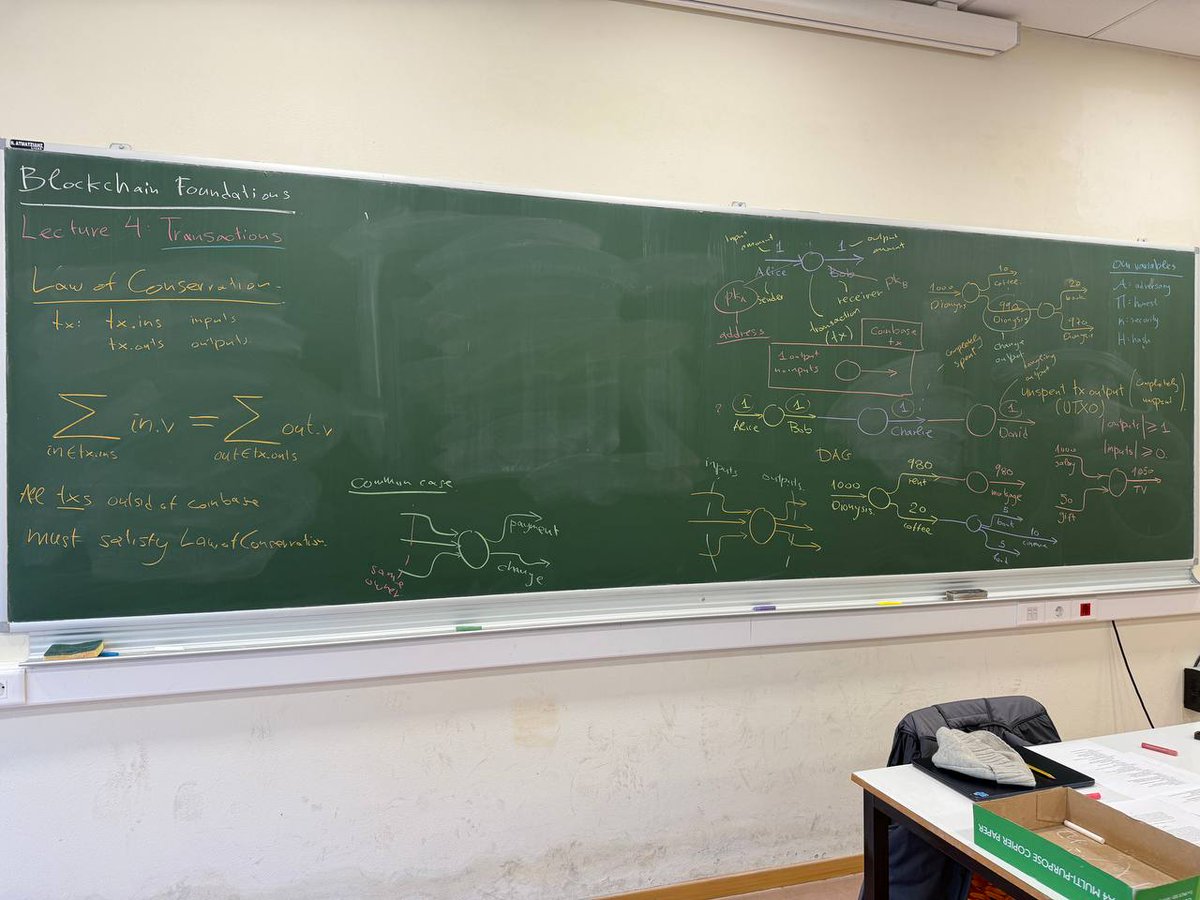 Blockchain Foundations
Lecture 4: Transactions
Law of Conservation
tx: tx.ins inputs
tx.outs outputs
∑ in.v = ∑ out.v
in∈tx.ins out∈tx.outs
All txs outsid of coinbase
must satisfy Law of Conservation
Common case
payment
change
same
owner
input
amount
1
1
output
amount
Alice
Bob
pkA
sender
receiver
pkB
address
transaction
(tx)
Coinbase
tx
1 output
no inputs
?
1
1
1
1
Alice
Bob
Charlie
David
completely
spent
dangling
output
unspent tx output (completely unspent)
(UTXO)
|outputs| ≥ 1
|inputs| ≥ 0
1000
Dionysis
10
coffee
990
Dionysis
change
output
20
970
Dionysis
Our variables
A: adversary
Π: honest
κ: security
H: hash
inputs
outputs
DAG
1000
Dionysis
980
rent
980
mortgage
20
coffee
5
10
cinema
5
1000
50
gift
1050
TV
A4 MULTI-PURPOSE COPIER PAPER